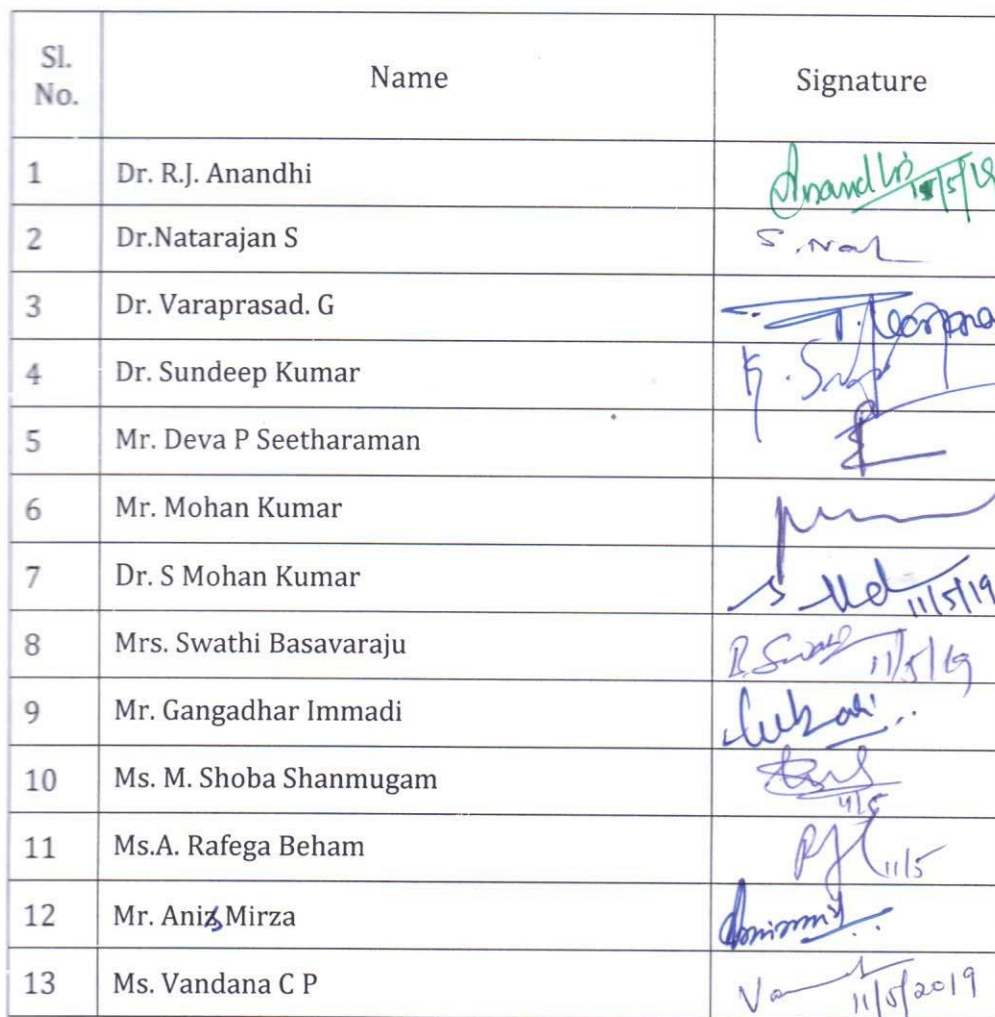 Sl. No. Name Signature
1 Dr. R.J. Anandhi Anandhi
2 Dr.Natarajan S S. Nat
3 Dr. Varaprasad. G
4 Dr. Sundeep Kumar
5 Mr. Deva P Seetharaman
6 Mr. Mohan Kumar
7 Dr. S Mohan Kumar 11/5/19
8 Mrs. Swathi Basavaraju 11/5/19
9 Mr. Gangadhar Immadi
10 Ms. M. Shoba Shanmugam
11 Ms.A. Rafega Beham 11/5
12 Mr. Anis Mirza
13 Ms. Vandana C P 11/5/2019